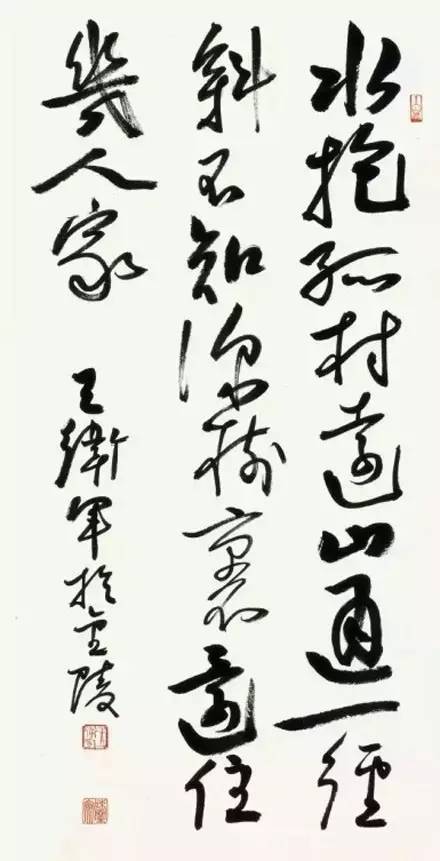 水抱孤村遠山通一徑
斜不知深樹裏還住
幾人家
王衛軍於金陵